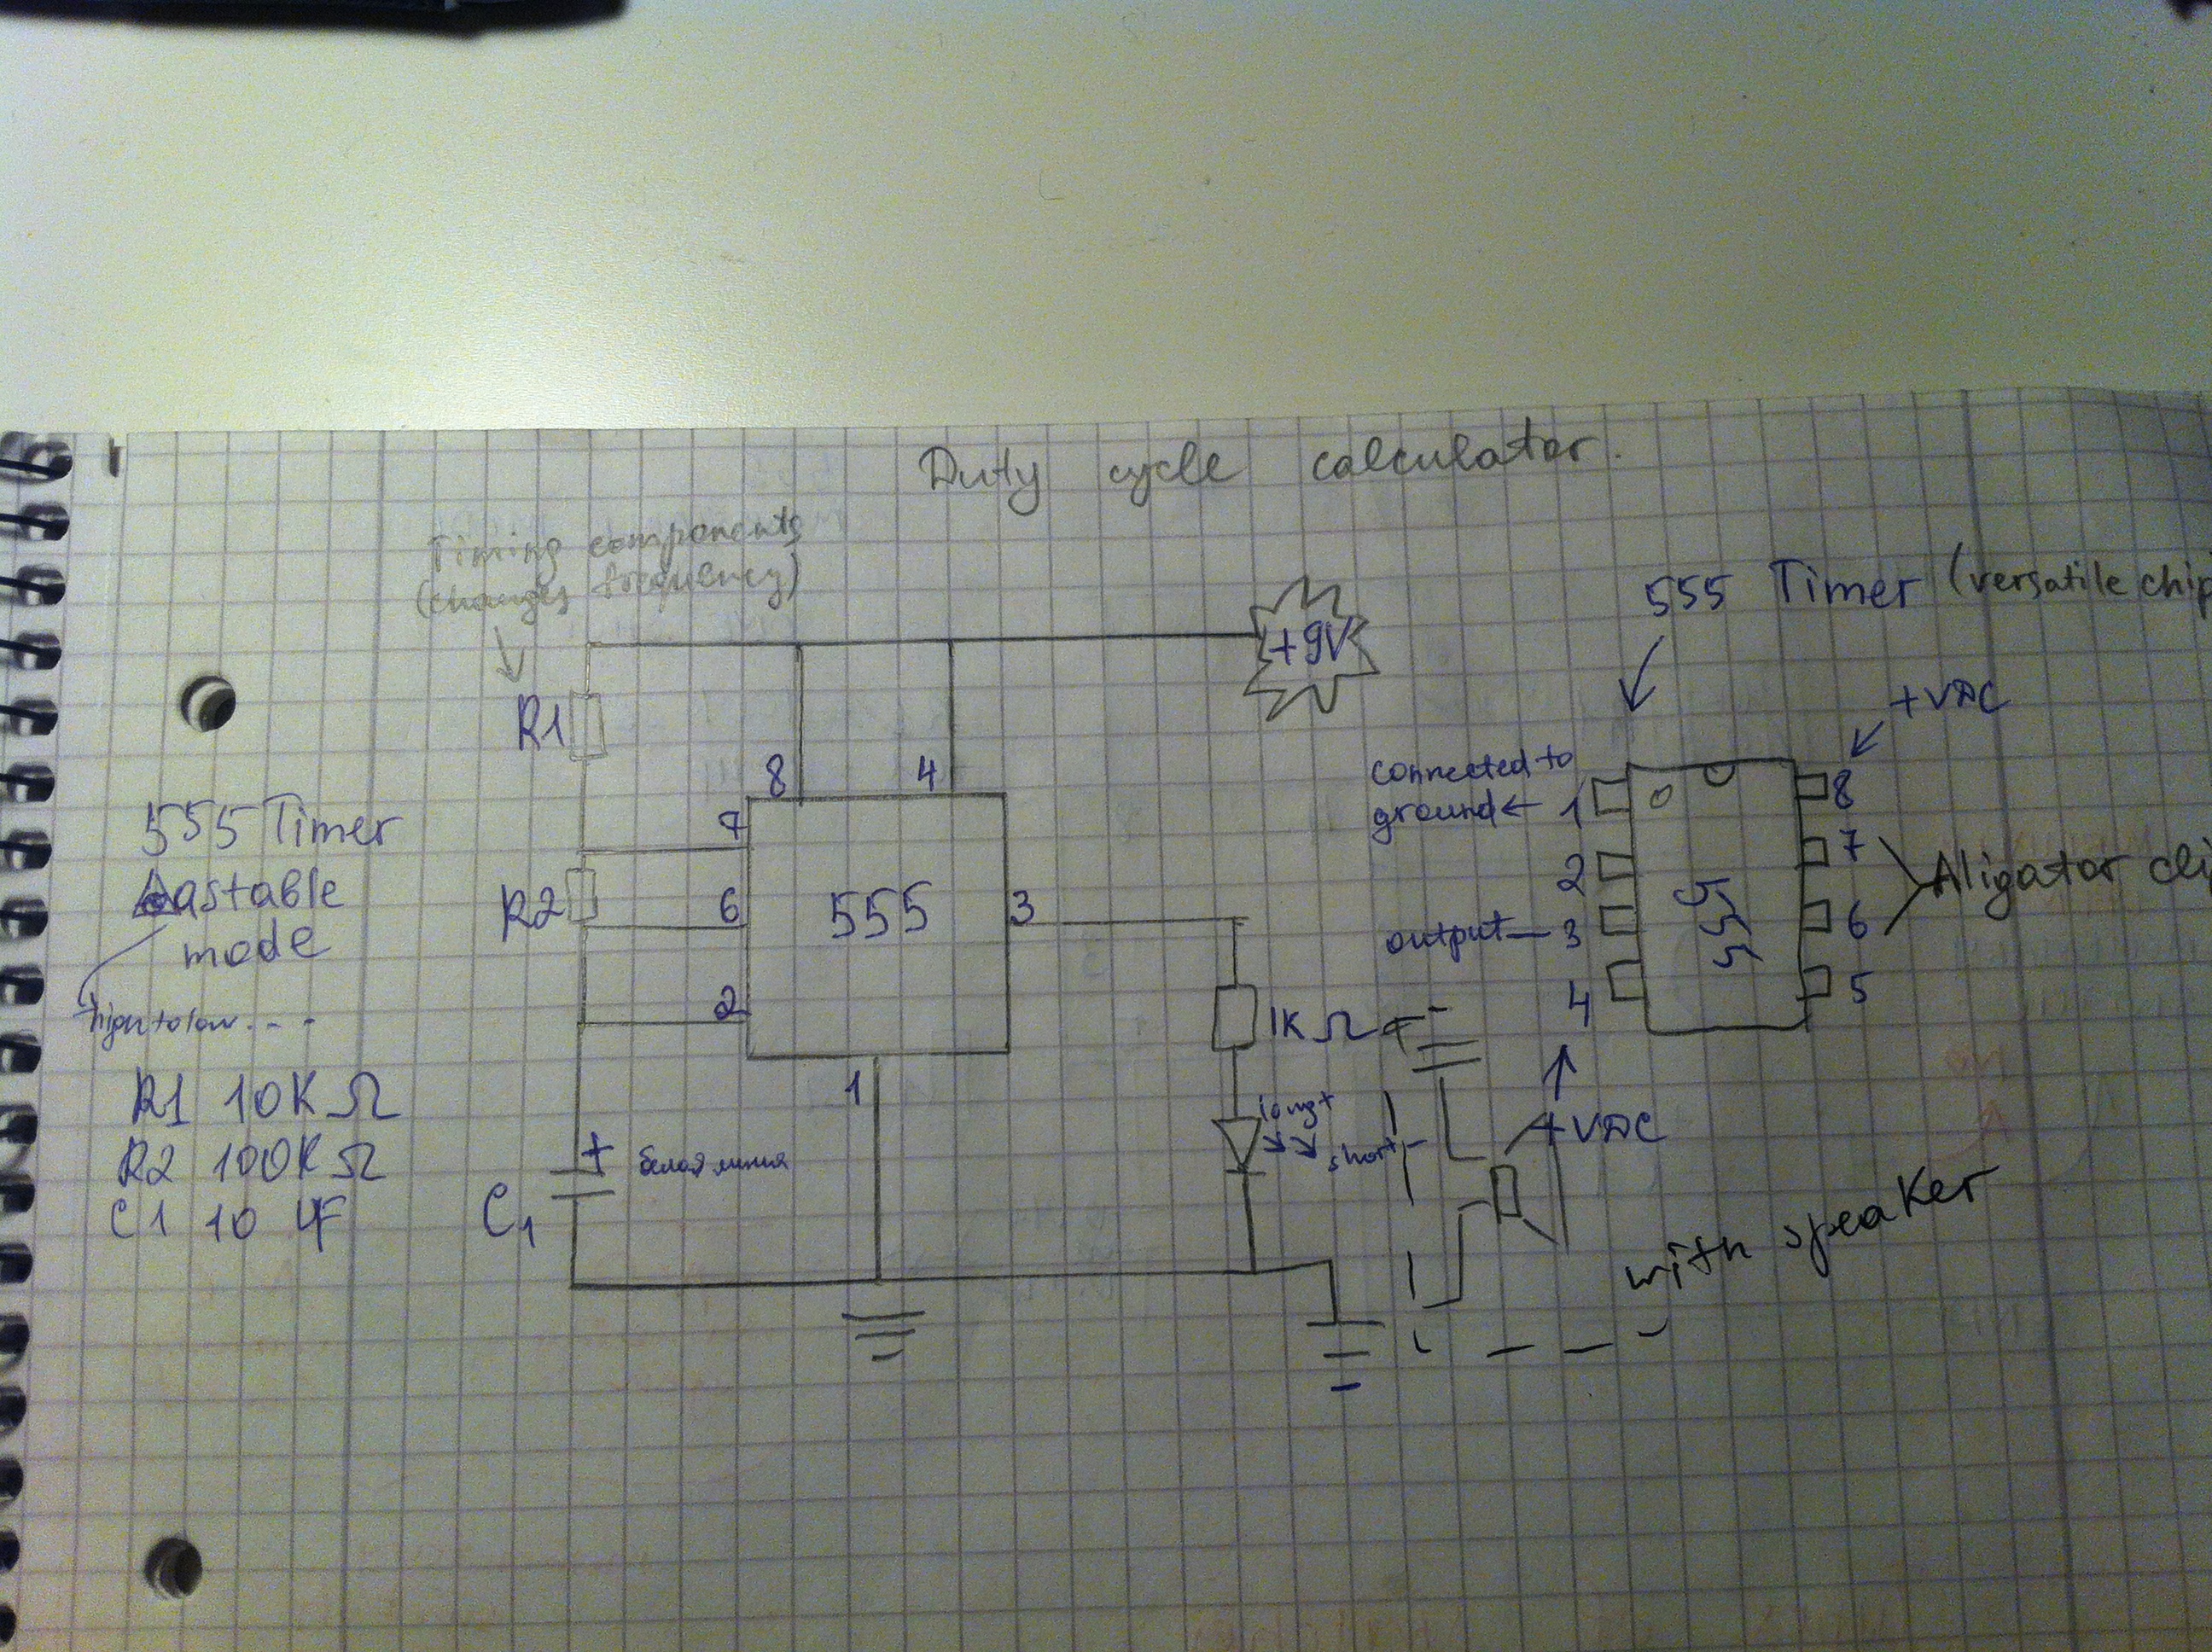 Duty cycle calculator.
Timing components
(changes frequency)
555 Timer (versatile chip
+9V
R1
+VDC
8 4
connected to
ground
1
8
7
555 Timer
astable
mode
R2
6
555
3
2
7
Aligator cli
output
3
6
555
high to low. - -
2
1K Ω
4
5
R1 10K Ω
1
long +
+VDC
R2 100K Ω
+ белая линия
short -
C1 10 µF
C1
with speaker